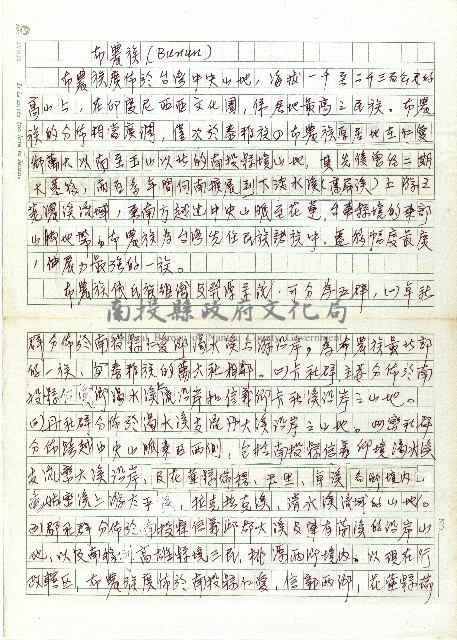 布農族(Bunun)
布農族廣佈於台灣中央山地,海拔一千至二千三百公尺的
高山上,在印度尼西亞文化圈,係居地最高之民族。布農
族的分佈相當廣濶,僅次於泰雅族。布農族居地在仁愛
鄉萬大以南至玉山以北的南投縣境山地,其先係
大,兩百多年間向南擴展到下淡水溪(高屏溪)上游之
荖濃溪流域,東南方越過中央山脈至花蓮、台東縣境的東部
山脈地帶。布農族為台灣先住民族諸族中,遷移幅度最廣
,伸展力最強的一族。
布農族依氏族組織與系統,可分為五群,(一)卓社
南投縣政府文化局
Bureau of Nantou County Government
群分佈於南投縣仁愛鄉濁水溪上游沿岸,為布農族最北部
的一族,與泰雅族的萬大社相鄰。(二)卡社群主要分佈於南
投縣仁愛鄉濁水溪沿岸和信義鄉卡社溪沿岸之山地。
(三)丹社群分佈於濁水溪支流丹大溪沿岸之山地。(四)巒社群
分佈跨越中央山脈東西兩側,包括南投縣信義鄉境濁水溪
支流巒大溪沿岸,及花蓮縣、玉里、卓溪各鄉境內
溪上游太平溪,拉克拉克溪,清水溪流域的山地。
(五)郡社群分佈於南投縣信義鄉郡大溪及陳有蘭溪的沿岸山
地,以及南移到高雄縣境三民,桃源兩鄉境內。以現在行
政轄區,布農族廣佈於南投縣仁愛,信義兩鄉,花蓮縣
3